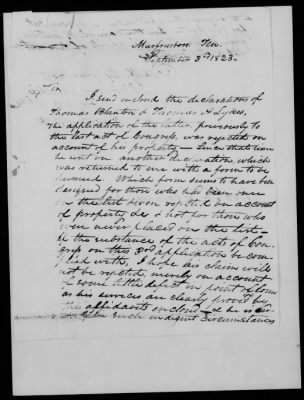 Murfreesboro Ten.
September 3rd 1823.
Sir,
I send enclosed the declarations of
Thomas Blanton & Thomas H. Sykes.
The application of the latter, previously to
the last act of Congress, was rejected on
account of his property — Since that time
he sent on another declaration, which
was returned to me with a form to be
pursued. Which form seems to have been
designed for those who had been once
on the list & even rejected on account
of property &c & not for those who
were never placed on the list —
If the substance of the acts of Con-
gress on this 3rd application be com-
plied with, I hope his claim will
not be rejected, merely on account
of some little defect in point of form
as his services are clearly proved by
the affidavits enclosed — & he is cer-
tainly in such indigent circumstances